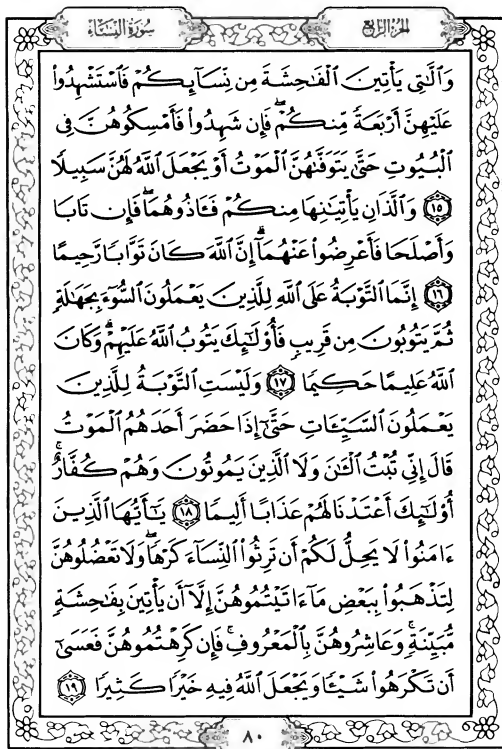 سُورَةُ النِّسَاءِ
الجُزْءُ الرَّابِعُ
وَٱلَّٰتِى يَأۡتِينَ ٱلۡفَٰحِشَةَ مِن نِّسَآئِكُمۡ فَٱسۡتَشۡهِدُواْ
عَلَيۡهِنَّ أَرۡبَعَةٗ مِّنكُمۡۖ فَإِن شَهِدُواْ فَأَمۡسِكُوهُنَّ فِى
ٱلۡبُيُوتِ حَتَّىٰ يَتَوَفَّىٰهُنَّ ٱلۡمَوۡتُ أَوۡ يَجۡعَلَ ٱللَّهُ لَهُنَّ سَبِيلٗا
١٥ وَٱلَّذَانِ يَأۡتِيَٰنِهَا مِنكُمۡ فَـَٔاذُوهُمَاۖ فَإِن تَابَا
وَأَصۡلَحَا فَأَعۡرِضُواْ عَنۡهُمَآۗ إِنَّ ٱللَّهَ كَانَ تَوَّابٗا رَّحِيمًا
١٦ إِنَّمَا ٱلتَّوۡبَةُ عَلَى ٱللَّهِ لِلَّذِينَ يَعۡمَلُونَ ٱلسُّوٓءَ بِجَهَٰلَةٖ
ثُمَّ يَتُوبُونَ مِن قَرِيبٖ فَأُوْلَٰٓئِكَ يَتُوبُ ٱللَّهُ عَلَيۡهِمۡۗ وَكَانَ
ٱللَّهُ عَلِيمًا حَكِيمٗا ١٧ وَلَيۡسَتِ ٱلتَّوۡبَةُ لِلَّذِينَ
يَعۡمَلُونَ ٱلسَّيِّـَٔاتِ حَتَّىٰٓ إِذَا حَضَرَ أَحَدَهُمُ ٱلۡمَوۡتُ
قَالَ إِنِّى تُبۡتُ ٱلۡـَٰٔنَ وَلَا ٱلَّذِينَ يَمُوتُونَ وَهُمۡ كُفَّارٌۚ
أُوْلَٰٓئِكَ أَعۡتَدۡنَا لَهُمۡ عَذَابًا أَلِيمٗا ١٨ يَٰٓأَيُّهَا ٱلَّذِينَ
ءَامَنُواْ لَا يَحِلُّ لَكُمۡ أَن تَرِثُواْ ٱلنِّسَآءَ كَرۡهٗاۖ وَلَا تَعۡضُلُوهُنَّ
لِتَذۡهَبُواْ بِبَعۡضِ مَآ ءَاتَيۡتُمُوهُنَّ إِلَّآ أَن يَأۡتِينَ بِفَٰحِشَةٖ
مُّبَيِّنَةٖۚ وَعَاشِرُوهُنَّ بِٱلۡمَعۡرُوفِۚ فَإِن كَرِهۡتُمُوهُنَّ فَعَسَىٰٓ
أَن تَكۡرَهُواْ شَيۡـٔٗا وَيَجۡعَلَ ٱللَّهُ فِيهِ خَيۡرٗا كَثِيرٗا ١٩
٨٠